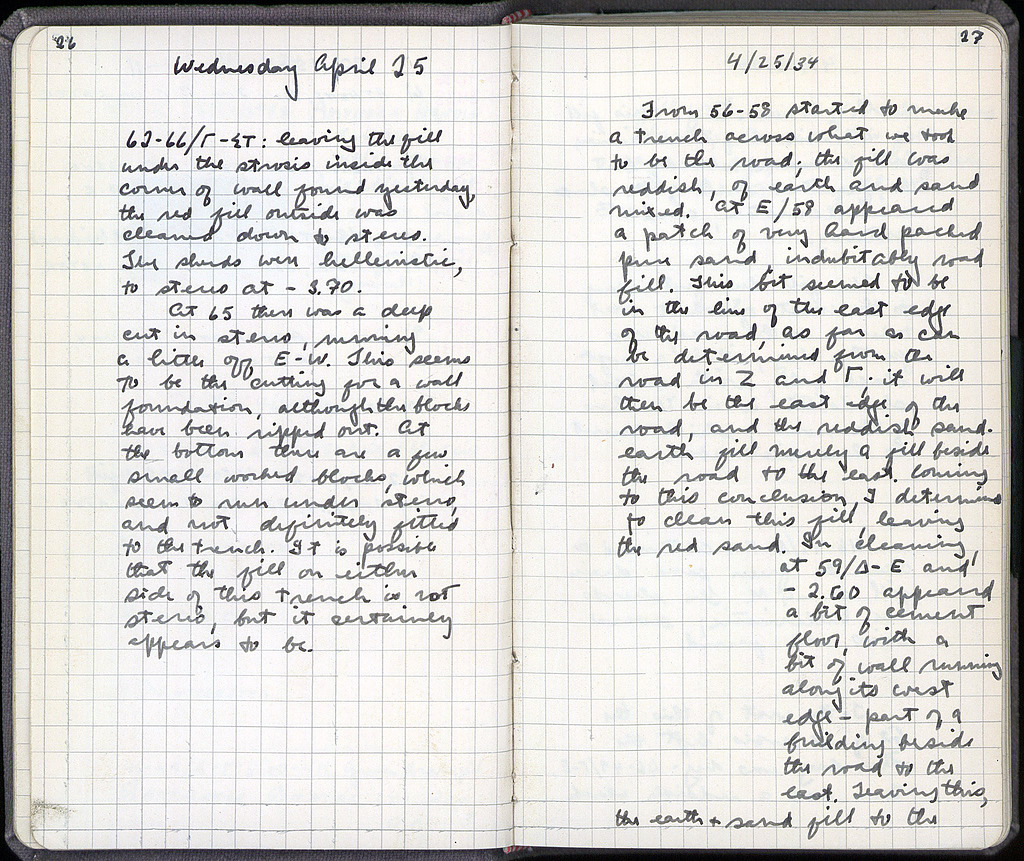 26
Wednesday April 25
62-66/Γ-ΣΤ: leaving the fill
under the strosis inside the
corner of wall found yesterday,
the red fill outside was
cleaned down to stereo.
The sherds were hellenistic,
to stereo at - 3.70.
At 65 there was a deep
cut in stereo, running
a little off E-W. This seems
to be the cutting for a wall
foundation, although the blocks
have been ripped out. At
the bottom there are a few
small worked blocks, which
seem to run under stereo,
and not definitely fitted
to the trench. It is possible
that the fill on either
side of this trench is not
stereo, but it certainly
appears to be.
27
4/25/34
From 56-58 started to make
a trench across what we took
to be the road; the fill was
reddish, of earth and sand
mixed. At E/58 appeared
a patch of very hard packed
pure sand, indubitably road
fill. This bit seemed to be
in the line of the east edge
of the road, as far as can
be determined from the
road in Z and Γ; it will
then be the east edge of the
road, and the reddish sand-
earth fill merely a fill beside
the road to the east. Coming
to this conclusion, I determined
to clean this fill, leaving
the red sand. In cleaning,
at 59/Δ-E and
- 2.60 appeared
a bit of cement
floor, with a
bit of wall running
along its west
edge - part of a
building beside
the road to the
east. Leaving this,
the earth + sand fill to the